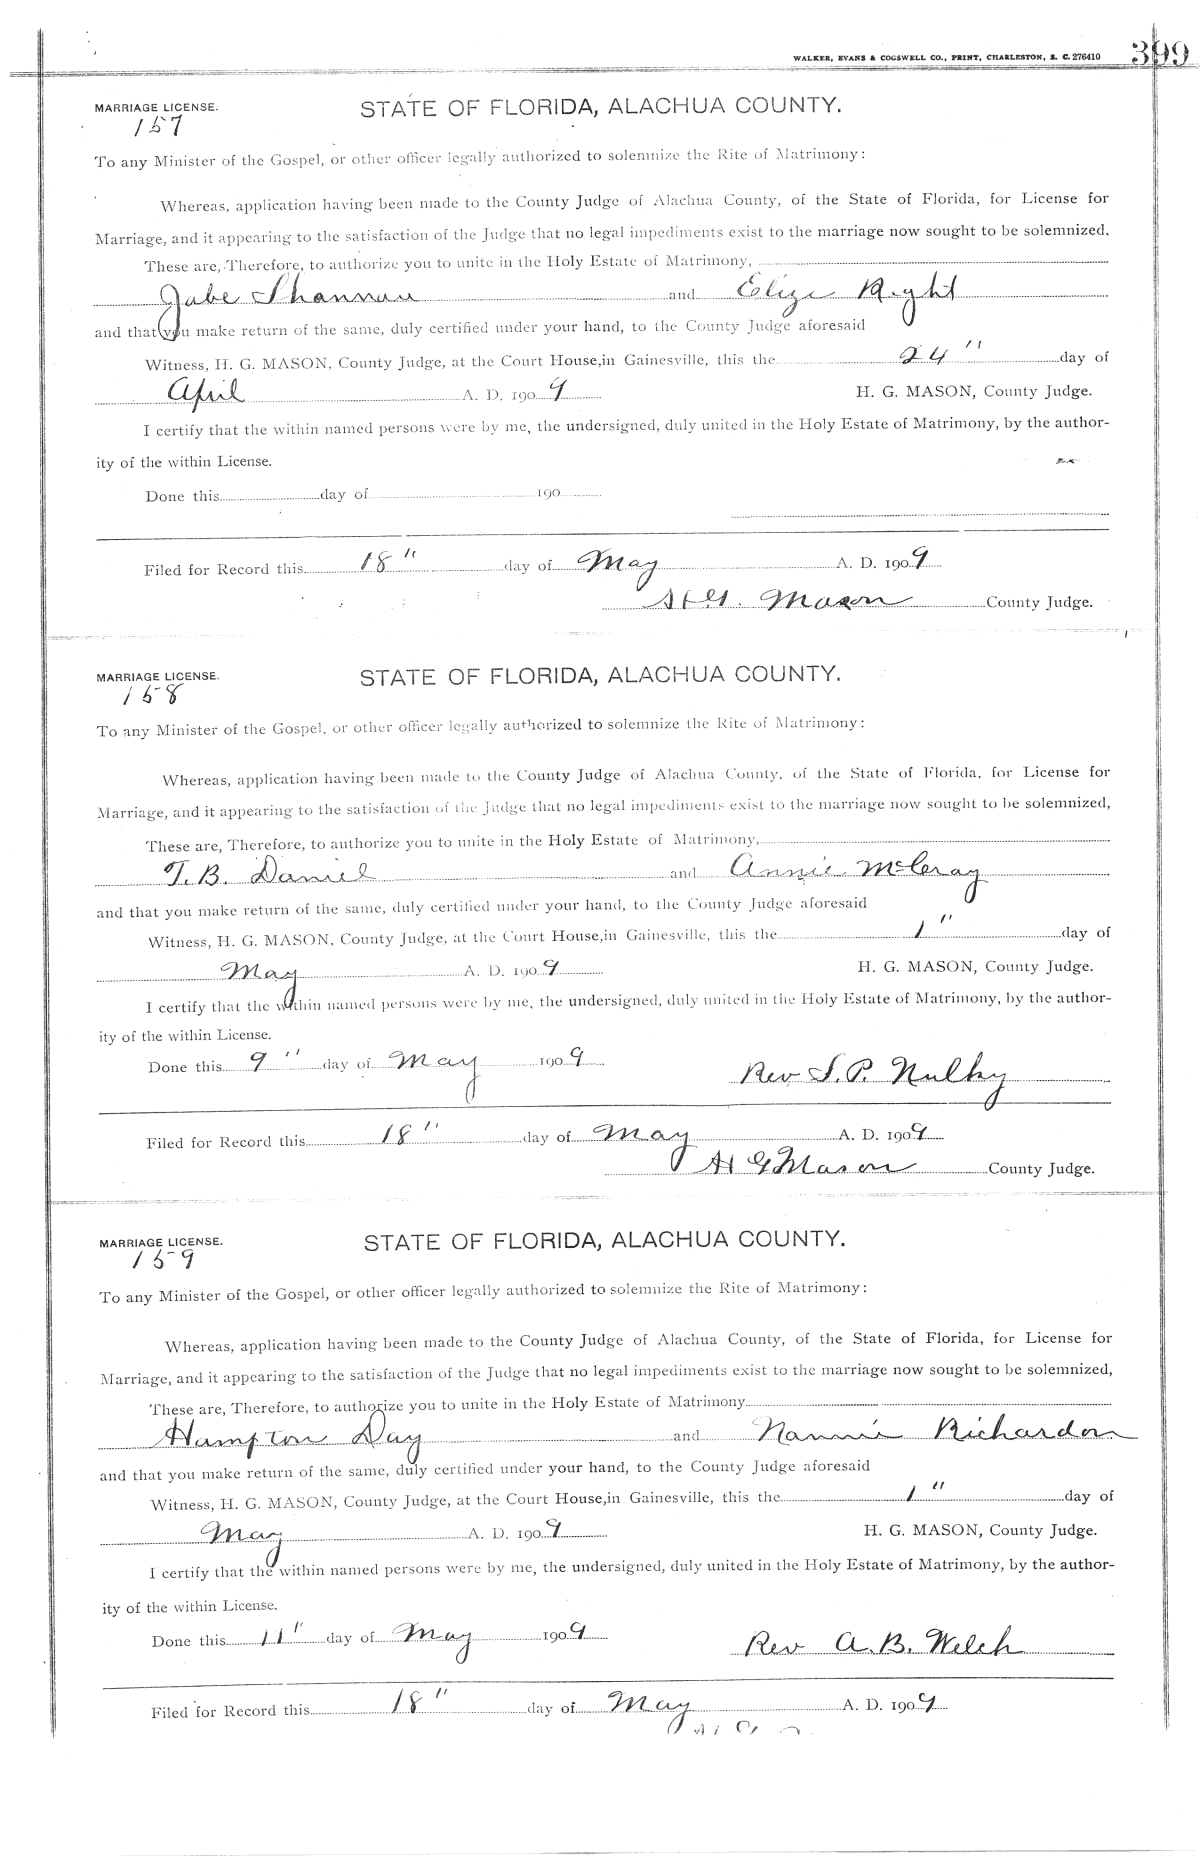 WALKER, EVANS & COGSWELL CO., PRINT, CHARLESTON, S. C. 276410 399
MARRIAGE LICENSE. STATE OF FLORIDA, ALACHUA COUNTY.
157
To any Minister of the Gospel, or other officer legally authorized to solemnize the Rite of Matrimony:
Whereas, application having been made to the County Judge of Alachua County, of the State of Florida, for License for
Marriage, and it appearing to the satisfaction of the Judge that no legal impediments exist to the marriage now sought to be solemnized.
These are, Therefore, to authorize you to unite in the Holy Estate of Matrimony,
Jabe Shannon and Eliza Right
and that you make return of the same, duly certified under your hand, to the County Judge aforesaid
Witness, H. G. MASON, County Judge, at the Court House, in Gainesville, this the 24" day of
April A. D. 1909 H. G. MASON, County Judge.
I certify that the within named persons were by me, the undersigned, duly united in the Holy Estate of Matrimony, by the author-
ity of the within License.
Done this day of 190
Filed for Record this 18" day of May A. D. 1909
H G. Mason County Judge.
MARRIAGE LICENSE. STATE OF FLORIDA, ALACHUA COUNTY.
158
To any Minister of the Gospel, or other officer legally authorized to solemnize the Rite of Matrimony:
Whereas, application having been made to the County Judge of Alachua County, of the State of Florida, for License for
Marriage, and it appearing to the satisfaction of the Judge that no legal impediments exist to the marriage now sought to be solemnized,
These are, Therefore, to authorize you to unite in the Holy Estate of Matrimony,
T. B. Daniel and Annie McCray
and that you make return of the same, duly certified under your hand, to the County Judge aforesaid
Witness, H. G. MASON, County Judge, at the Court House, in Gainesville, this the 1" day of
May A. D. 1909 H. G. MASON, County Judge.
I certify that the within named persons were by me, the undersigned, duly united in the Holy Estate of Matrimony, by the author-
ity of the within License.
Done this 9" day of May 1909 Rev S. P. Nulky
Filed for Record this 18" day of May A. D. 1909
H G Mason County Judge.
MARRIAGE LICENSE. STATE OF FLORIDA, ALACHUA COUNTY.
159
To any Minister of the Gospel, or other officer legally authorized to solemnize the Rite of Matrimony:
Whereas, application having been made to the County Judge of Alachua County, of the State of Florida, for License for
Marriage, and it appearing to the satisfaction of the Judge that no legal impediments exist to the marriage now sought to be solemnized,
These are, Therefore, to authorize you to unite in the Holy Estate of Matrimony
Hampton Day and Nannie Richardon
and that you make return of the same, duly certified under your hand, to the County Judge aforesaid
Witness, H. G. MASON, County Judge, at the Court House, in Gainesville, this the 1" day of
May A. D. 1909 H. G. MASON, County Judge.
I certify that the within named persons were by me, the undersigned, duly united in the Holy Estate of Matrimony, by the author-
ity of the within License.
Done this 11" day of May 1909 Rev A. B. Welch
Filed for Record this 18" day of May A. D. 1909